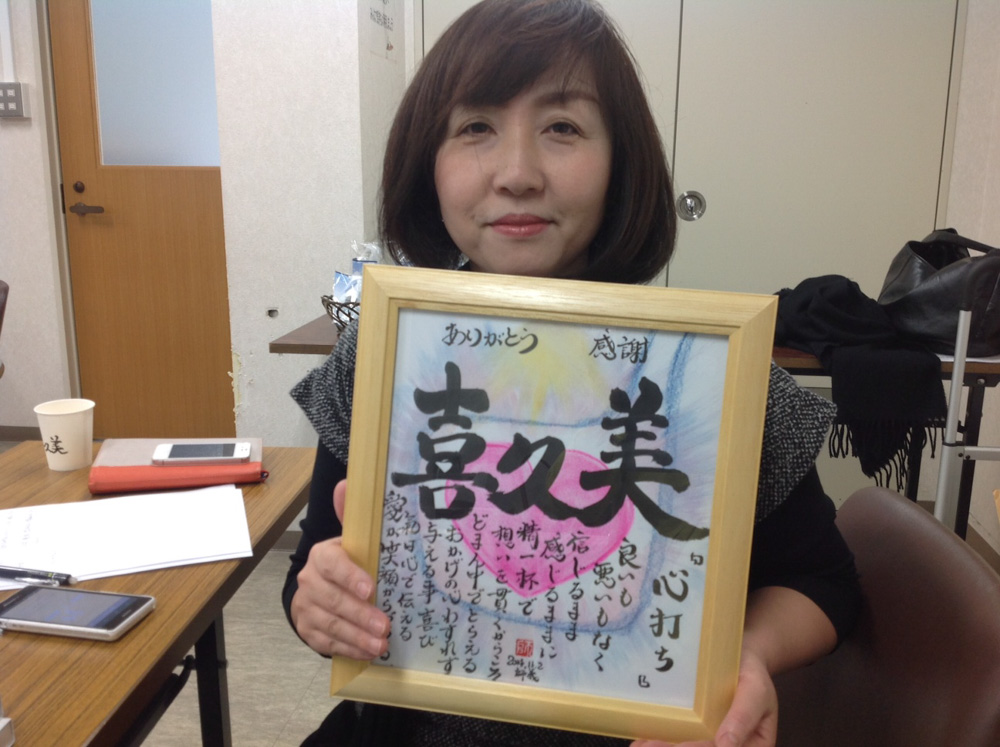 ありがとう 感謝
喜久美
「心打ち」
良いも
悪いもなく
信じるまま
感じるままに
精一杯で
想いを貫くからこそ
どまん中でとらえる
おかげの心わすれず
与える事喜び
毎日心で伝える
愛が笑顔から
久美